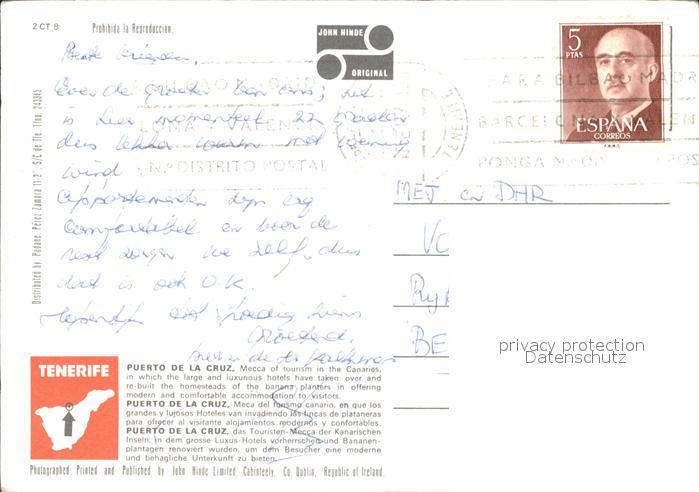 2 CT 8 Prohibida la Reproduccion.
JOHN HINDE
ORIGINAL
5
PTAS
ESPAÑA
CORREOS
F.N.M.T.
BILBAO MADRID
LONA VALENCIA
N.º DISTRITO POSTAL
TENERIFE
PARA BILBAO MADR
BARCEL VALEN
PONGA N.º D POS
Beste vrienden,
Even de groeten van ons; het
is hier momenteel 22 graden
dus lekker warm met weinig
wind
Appartementen zijn erg
comfortabel en voor de
rest zorgen we zelf, dus
dat is ook O.K.
groetend,
MET en DHR
VC
RY
BE
privacy protection
Datenschutz
Distributed by: Padane. Pérez Zamora 11-2º. S/C de Tfe. Tfno. 243315
TENERIFE
PUERTO DE LA CRUZ, Mecca of tourism in the Canaries,
in which the large and luxurious hotels have taken over and
re-built the homesteads of the banana planters in offering
modern and comfortable accommodation to visitors.
PUERTO DE LA CRUZ, Meca del turismo canario, en que los
grandes y lujosos Hoteles van invadiendo las fincas de plataneras
para ofrecer al visitante alojamientos modernos y confortables.
PUERTO DE LA CRUZ, das Touristen-Mecca der Kanarischen
Inseln, in dem grosse Luxus-Hotels vorherrschen und Bananen-
plantagen renoviert wurden, um dem Besucher eine moderne
und behagliche Unterkunft zu bieten.
Photographed, Printed and Published by John Hinde Limited, Cabinteely, Co. Dublin, Republic of Ireland.